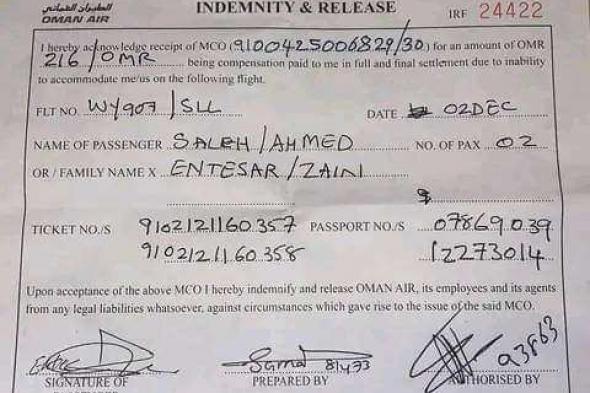 الطيران العماني
OMAN AIR
INDEMNITY & RELEASE
IRF 24422
I hereby acknowledge receipt of MCO (9100425006829/30) for an amount of OMR
216/OMR being compensation paid to me in full and final settlement due to inability
to accommodate me/us on the following flight.
FLT NO. WY907/SLL DATE 02DEC
NAME OF PASSENGER SALEH/AHMED NO. OF PAX 02
OR / FAMILY NAME X ENTESAR/ZAINI
TICKET NO./S 9102121160357 PASSPORT NO./S 07869039
9102121160358 12273014
Upon acceptance of the above MCO I hereby indemnify and release OMAN AIR, its employees and its agents
from any legal liabilities whatsoever, against circumstances which gave rise to the issue of the said MCO.
81473 93863
SIGNATURE OF PREPARED BY AUTHORISED BY